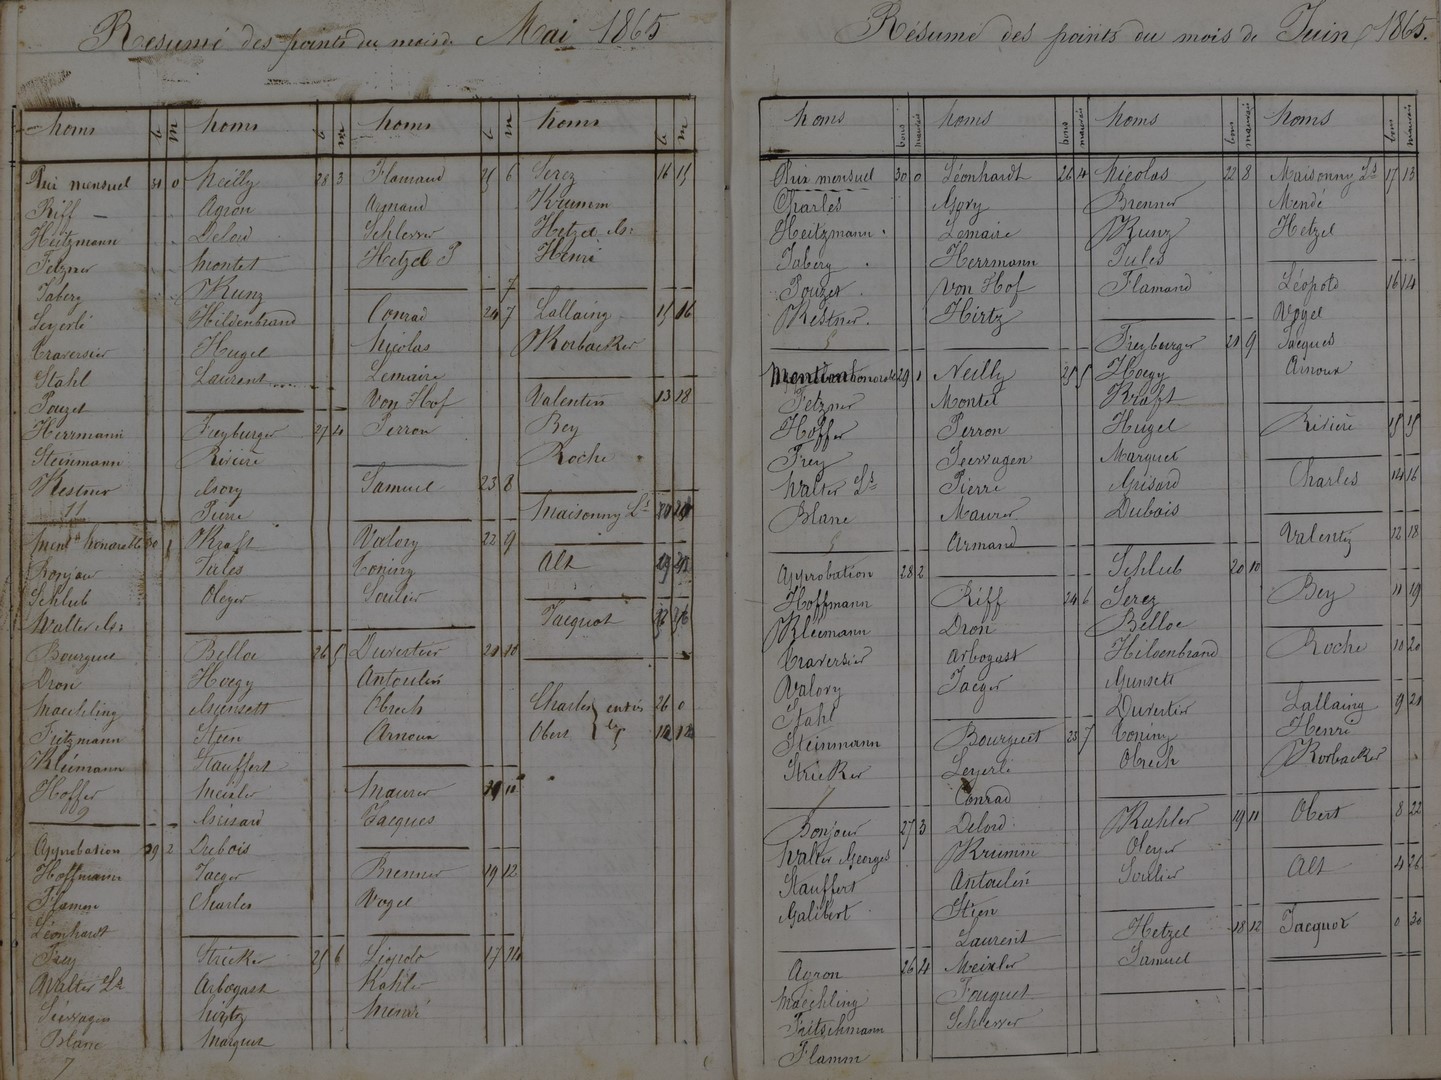 Résumé des points du mois de Mai 1865
noms b m
Prix mensuel 31 0
Riff
Heitzmann
Fetzner
Taberg
Leyerlé
Traversier
Stahl
Pouget
Herrmann
Steinmann
Kestner
11
Ment. honorable 30 1
Bonjour
Schlub
Walter
Bourguet
Dron
Maechling
Fritzmann
Kleimann
Hoffer
9
Approbation 29 2
Hoffmann
Flamm
Léonhardt
Frey
Walter Ls
Seewagen
Blanc
7
noms b m
Neilly 28 3
Agron
Delord
Montet
Kunz
Hildenbrand
Hugel
Laurent
Freyburger 27 4
Rivière
Gory
Pierre
Kraft
Jules
Oleyer
Belloc 26 5
Hoegy
Munsett
Stien
Stauffert
Meixler
Grisard
Dubois
Jaeger
Charles
Stricker 25 6
Arbogast
Hirtz
Marguet
noms b m
Flamand 25 6
Armand
Schlesser
Hetzel P
7
Conrad 24 7
Nicolas
Lemaire
Von Hof
Perron
Samuel 23 8
Valory 22 9
Coning
Soulier
Duvestier 20 10
Antoulin
Obrech
Arnoux
Maurer
Jacques
Brenner 19 12
Vogel
Léopold 17 14
Kahler
Mendé
noms b m
Serez 16 15
Krumm
Hetzel
Henri
Lallaing 15 16
Korbacker
Valentin 13 18
Bey
Roche
Maisonny Ls
Alt
Jacquot
Charles 26 0
Obert
entrés
le 5
Résumé des points du mois de Juin 1865.
noms bons mauvais
Prix mensuel 30 0
Charles
Heitzmann
Taberg
Pouget
Kestner
5
Mention honorable 29 1
Fetzner
Hoffer
Frey
Walter Ls
Blanc
5
Approbation 28 2
Hoffmann
Kleimann
Traversier
Valory
Stahl
Steinmann
Stricker
7
Bonjour 27 3
Walter Georges
Stauffert
Galibert
Agron 26 4
Maechling
Fritschmann
Flamm
noms bons mauvais
Léonhardt 26 4
Gory
Lemaire
Herrmann
Von Hof
Hirtz
Neilly 25 5
Montet
Perron
Seewagen
Pierre
Maurer
Armand
Riff 24 6
Dron
Arbogast
Jaeger
Bourguet 23 7
Leyerlé
Conrad
Delord
Krumm
Antoulin
Stien
Laurent
Meixler
Fouquet
Schlesser
noms bons mauvais
Nicolas 22 8
Brenner
Kunz
Jules
Flamand
Freyburger 21 9
Hoegy
Kraft
Hugel
Marguet
Grisard
Dubois
Schlub 20 10
Serez
Belloc
Hildenbrand
Munsett
Duvestier
Coning
Obrech
Kahler 19 11
Oleyer
Soulier
Hetzel 18 12
Samuel
noms bons mauvais
Maisonny Ls 17 13
Mendé
Hetzel
Léopold 16 14
Vogel
Jacques
Arnoux
Rivière 15 15
Charles 14 16
Valentin 12 18
Bey 11 19
Roche 10 20
Lallaing 9 21
Henri
Korbacker
Obert 8 22
Alt 4 26
Jacquot 0 30